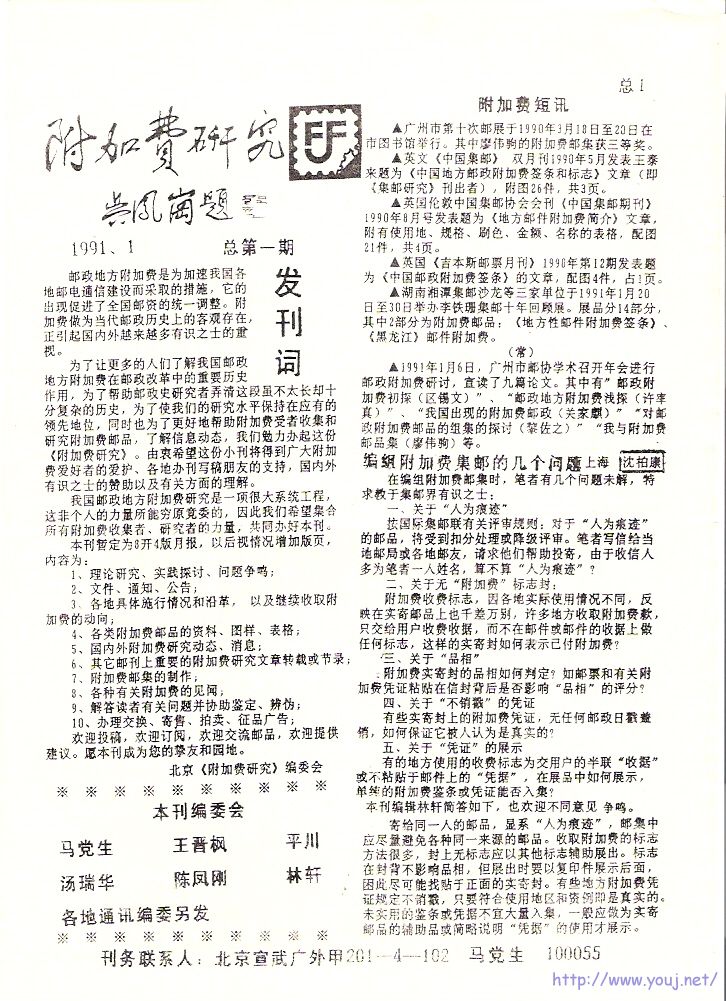 总1
附加費研究
吴凤岗题
1991、1 总第一期
发刊词
邮政地方附加费是为加速我国各
地邮电通信建设而采取的措施，它的
出现促进了全国邮资的统一调整。附
加费做为当代邮政历史上的客观存在，
正引起国内外越来越多有识之士的重
视。
为了让更多的人们了解我国邮政
地方附加费在邮政改革中的重要历史
作用，为了帮助邮政史研究者弄清这段虽不太长却十
分复杂的历史，为了使我们的研究水平保持在应有的
领先地位，同时也为了更好地帮助附加费爱者收集和
研究附加费邮品，了解信息动态，我们勉力办起这份
《附加费研究》。由衷希望这份小刊将得到广大附加
费爱好者的爱护、各地办刊写稿朋友的支持，国内外
有识之士的赞助以及有关方面的理解。
我国邮政地方附加费研究是一项很大系统工程，
这非个人的力量所能穷原竟委的，因此我们希望集合
所有附加费收集者、研究者的力量，共同办好本刊。
本刊暂定为8开4版月报，以后视情况增加版页，
内容为：
1、理论研究、实践探讨、问题争鸣；
2、文件、通知、公告；
3、各地具体施行情况和沿革， 以及继续收取附
加费的动向；
4、各类附加费邮品的资料、图样、表格；
5、国内外附加费研究动态、消息；
6、其它邮刊上重要的附加费研究文章转载或节录；
7、附加费邮集的制作；
8、各种有关附加费的见闻；
9、解答读者有关问题并协助鉴定、辨伪；
10、办理交换、寄售、拍卖、征品广告；
欢迎投稿，欢迎订阅，欢迎交流邮品，欢迎提供
建议。愿本刊成为您的挚友和园地。
北京《附加费研究》编委会
※ ※ ※ ※ ※ ※ ※ ※ ※ ※ ※
本刊编委会
马党生 王晋枫 平川
汤瑞华 陈凤刚 林轩
各地通讯编委另发
※ ※ ※ ※ ※ ※ ※ ※ ※ ※ ※
附加费短讯
▲广州市第十次邮展于1990年3月18日至20日在
市图书馆举行。其中廖伟驹的附加费邮集获三等奖。
▲英文《中国集邮》 双月刊1990年5月发表王泰
来题为《中国地方邮政附加费签条和标志》文章（即
《集邮研究》刊出者），附图26件，共3页。
▲英国伦敦中国集邮协会会刊《中国集邮期刊》
1990年8月号发表题为《地方邮件附加费简介》文章，
附有使用地、规格、刷色、金额、名称的表格，配图
21件，共4页。
▲英国《吉本斯邮票月刊》1990年第12期发表题
为《中国邮政附加费签条》的文章，配图4件，占1页。
▲湖南湘潭集邮沙龙等三家单位于1991年1月20
日至30日举办李铁珊集邮十年回顾展。展品分14部分，
其中2部分为附加费邮品：《地方性邮件附加费签条》、
《黑龙江》邮件附加费。
（常）
▲1991年1月6日，广州市邮协学术召开年会进行
邮政附加费研讨，宣读了九篇论文。其中有”邮政附
加费初探（区锡文）”、“邮政地方附加费浅探（许率
真）”、“我国出现的附加费邮政（关家麒）”“对邮
政附加费邮品的组集的探讨（黎佐之）”“我与附加费
邮品集（廖伟驹）等。
编组附加费集邮的几个问题 上海 沈柏康
在编组附加费邮集时，笔者有几个问题未解，特
求教于集邮界有识之士：
一、关于“人为痕迹”
按国际集邮联有关评审规则：对于“人为痕迹”
的邮品，将受到扣分处理或降级评审。笔者写信给当
地邮局或各地邮友，请求他们帮助投寄，由于收信人
多为笔者一人姓名，算不算“人为痕迹”？
二、关于无“附加费”标志封：
附加费收费标志，因各地实际使用情况不同，反
映在实寄邮品上也千差万别，许多地方收取附加费款，
只交给用户收费收据，而不在邮件或邮件的收据上做
任何标志，这样的实寄封如何表示已付附加费？
三、关于“品相”
附加费实寄封的品相如何判定？如邮票和有关附
加费凭证粘贴在信封背后是否影响“品相”的评分？
四、关于“不销戳”的凭证
有些实寄封上的附加费凭证，无任何邮政日戳盖
销，如何保证它被人认为是真实的？
五、关于“凭证”的展示
有的地方使用的收费标志为交用户的半联“收据”
或不粘贴于邮件上的“凭据”，在展品中如何展示，
单纯的附加费签条或凭证能否入集？
本刊编辑林轩简答如下，也欢迎不同意见 争鸣。
寄给同一人的邮品，显系“人为痕迹”，邮集中
应尽量避免各种同一来源的邮品。收取附加费的标志
方法很多，封上无标志应以其他标志辅助展出。标志
在封背不影响品相，但展出时要以复印件展示后面，
因此尽可能找贴于正面的实寄封。有些地方附加费凭
证规定不销戳，只要符合使用地区和资例即是真实的。
未实用的签条或凭据不宜大量入集，一般应做为实寄
邮品的辅助邮品或简略说明“凭据”的使用才展示。
刊务联系人：北京宣武广外甲201—4—102 马党生 100055
http://www.youj.net/